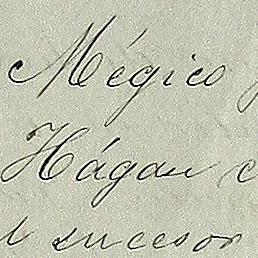 Mégico
Hágan
sucesor